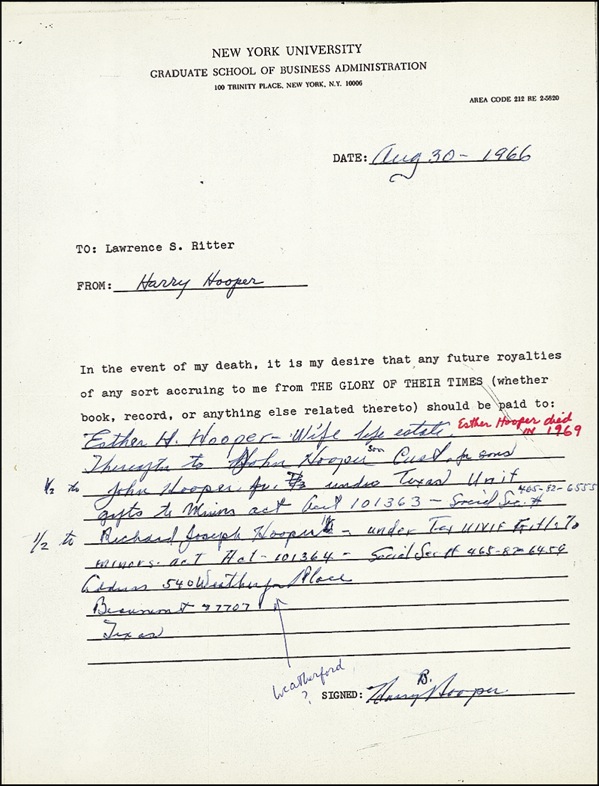 NEW YORK UNIVERSITY
GRADUATE SCHOOL OF BUSINESS ADMINISTRATION
100 TRINITY PLACE, NEW YORK, N.Y. 10006
AREA CODE 212 RE 2-5820
DATE: Aug 30 - 1966
TO: Lawrence S. Ritter
FROM: Harry Hooper
In the event of my death, it is my desire that any future royalties
of any sort accruing to me from THE GLORY OF THEIR TIMES (whether
book, record, or anything else related thereto) should be paid to:
Esther H. Hooper - Wife life estate Esther Hooper died
IN 1969
Thereafter to John Hooper son Cust. for sons
1/2 to John Hooper Jr. under Texas Unif 465-82-6555
gifts to Minors act Acct 101363 - Social Sec. #
1/2 to Richard Joseph Hooper 1/2 - under Tex UNIF Gifts To
minors act Act - 101364 - Social Sec # 465-82-6456
Address 540 Place
Beaumont 77707
Texas
Weatherford
?
SIGNED: Harry B. Hooper